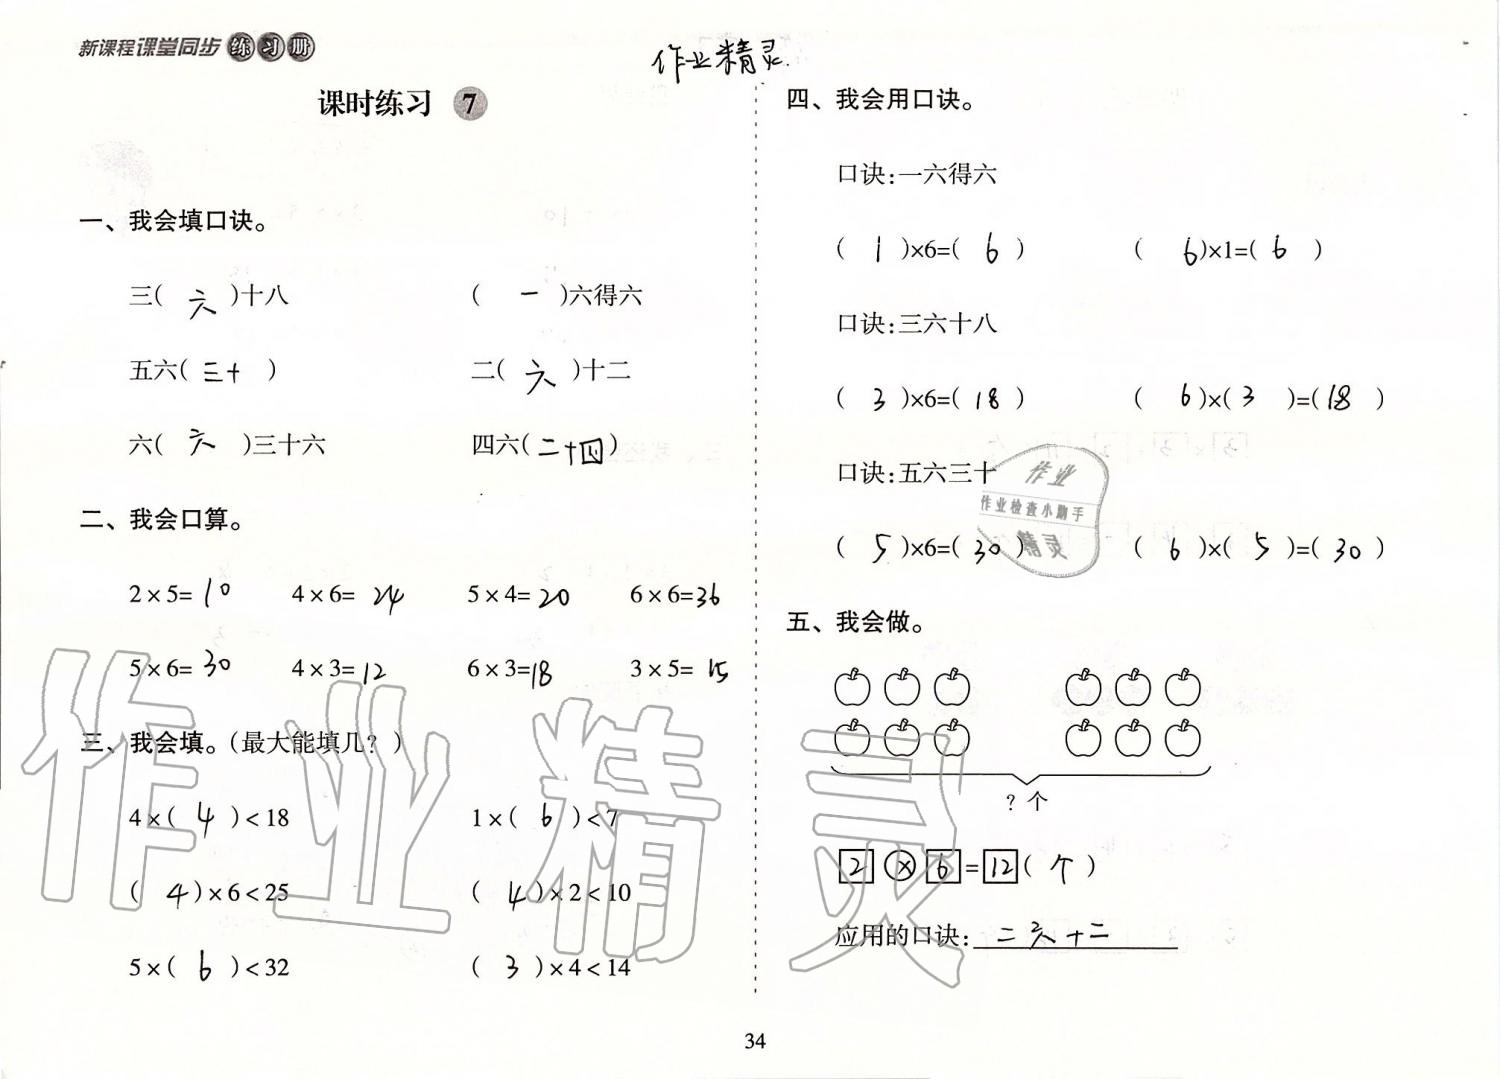 新课程课堂同步练习册
作业精灵
课时练习 7
一、我会填口诀。
三( 六 )十八 ( 一 )六得六
五六( 三十 ) 二( 六 )十二
六( 六 )三十六 四六( 二十四 )
二、我会口算。
2×5=10 4×6=24 5×4=20 6×6=36
5×6=30 4×3=12 6×3=18 3×5=15
三、我会填。(最大能填几?)
4×( 4 )<18 1×( 6 )<7
( 4 )×6<25 ( 4 )×2<10
5×( 6 )<32 ( 3 )×4<14
四、我会用口诀。
口诀:一六得六
( 1 )×6=( 6 ) ( 6 )×1=( 6 )
口诀:三六十八
( 3 )×6=( 18 ) ( 6 )×( 3 )=( 18 )
口诀:五六三十
( 5 )×6=( 30 ) ( 6 )×( 5 )=( 30 )
作业
作业检查小助手
精灵
五、我会做。
? 个
2 × 6 = 12 ( 个 )
应用的口诀: 二六十二
作业精灵
34